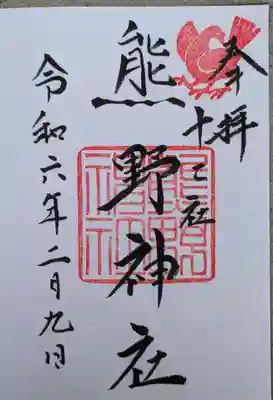 奉拝
十二社
熊野神社
令和六年二月九日